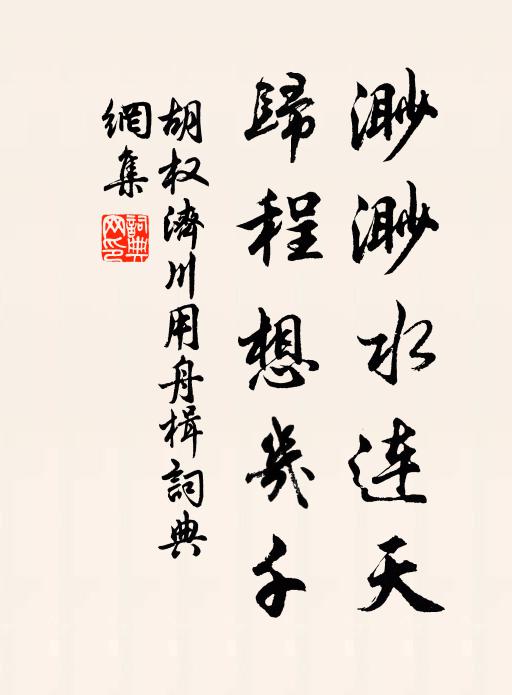 渺渺水连天
歸程想幾千
胡权濟川用舟楫詞典
網集
詞典
网印